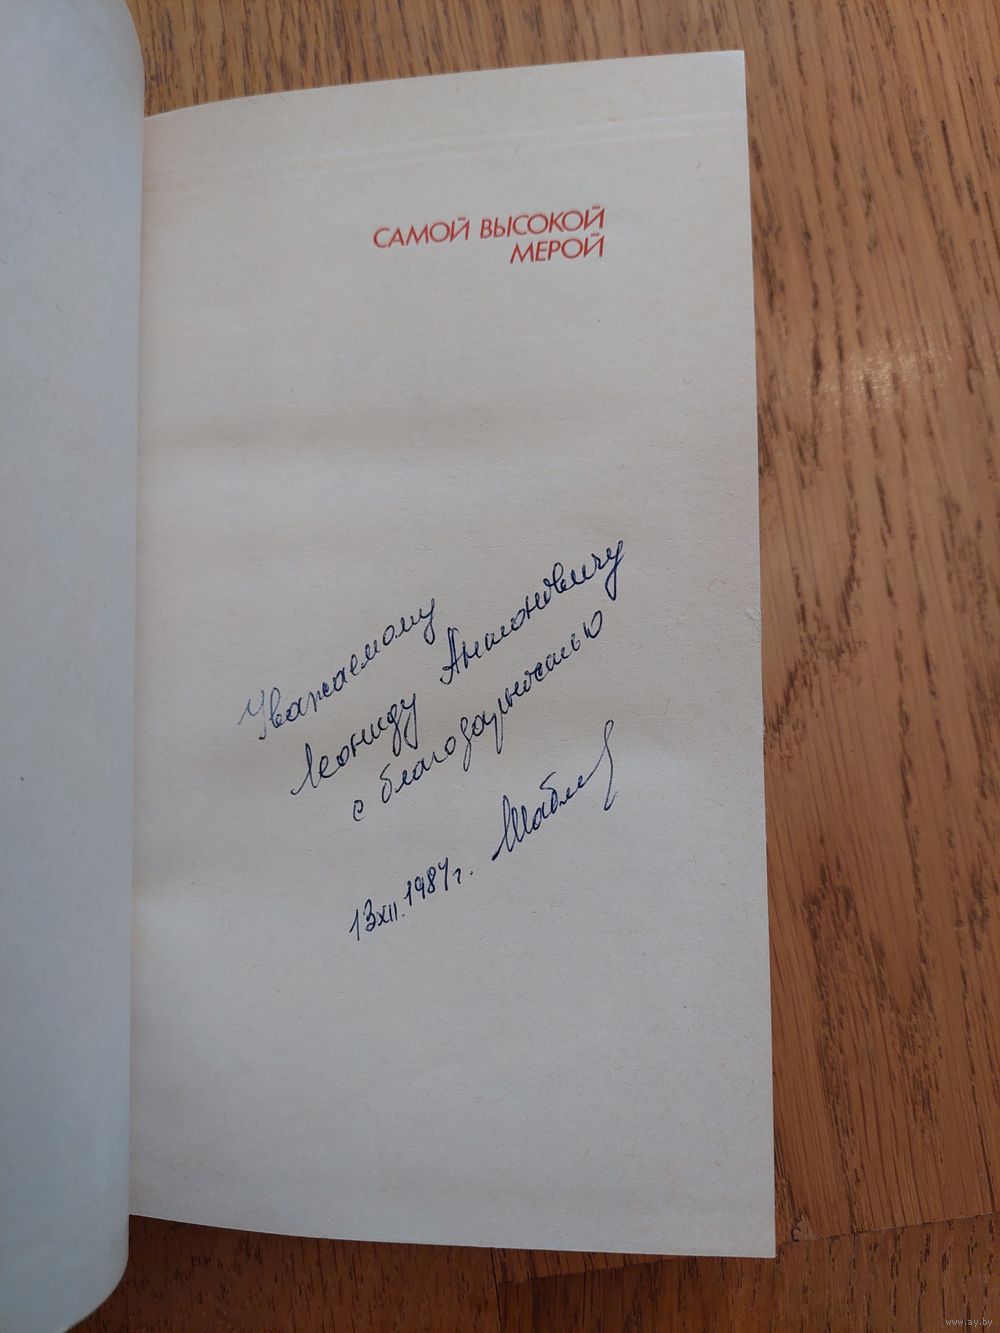 САМОЙ ВЫСОКОЙ
МЕРОЙ
Уважаемому
Леониду Антоновичу
с благодарностью
13 XII. 1987 г.
www.ay.by